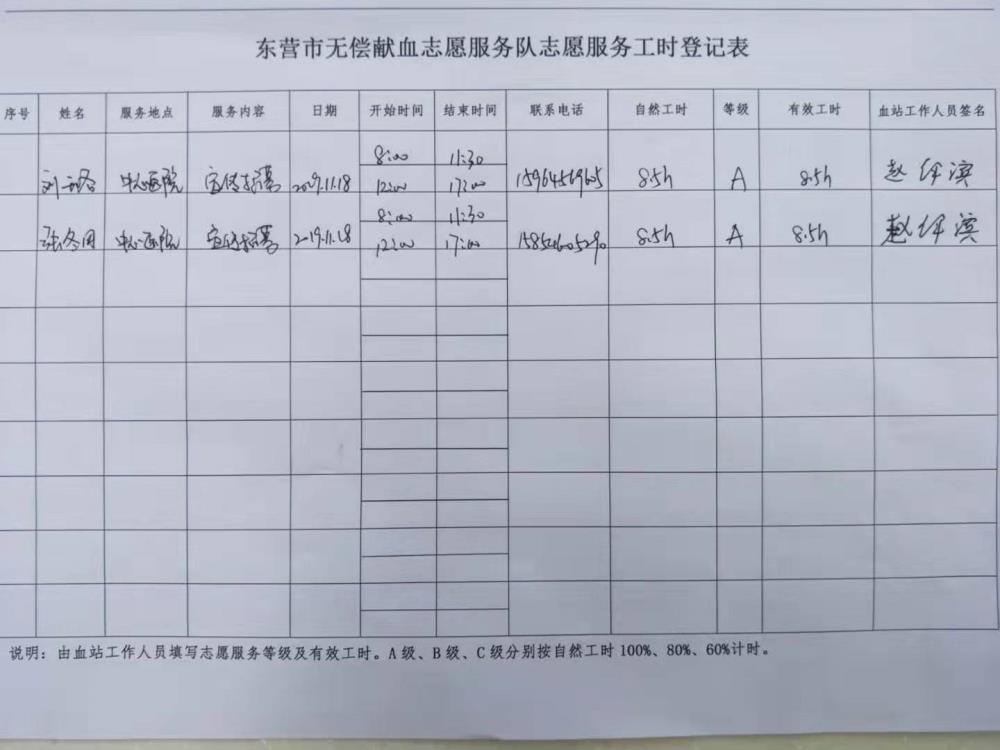 东营市无偿献血志愿服务队志愿服务工时登记表
序号 姓名 服务地点 服务内容 日期 开始时间 结束时间 联系电话 自然工时 等级 有效工时 血站工作人员签名
8:00 11:30
刘 中心医院 宣传招募 2019.11.18 12:00 17:00 8.5h A 8.5h 赵 滨
8:00 11:30
张冬 中心医院 宣传招募 2019.11.18 12:00 17:00 8.5h A 8.5h 赵 滨
说明：由血站工作人员填写志愿服务等级及有效工时。A级、B级、C级分别按自然工时100%、80%、60%计时。